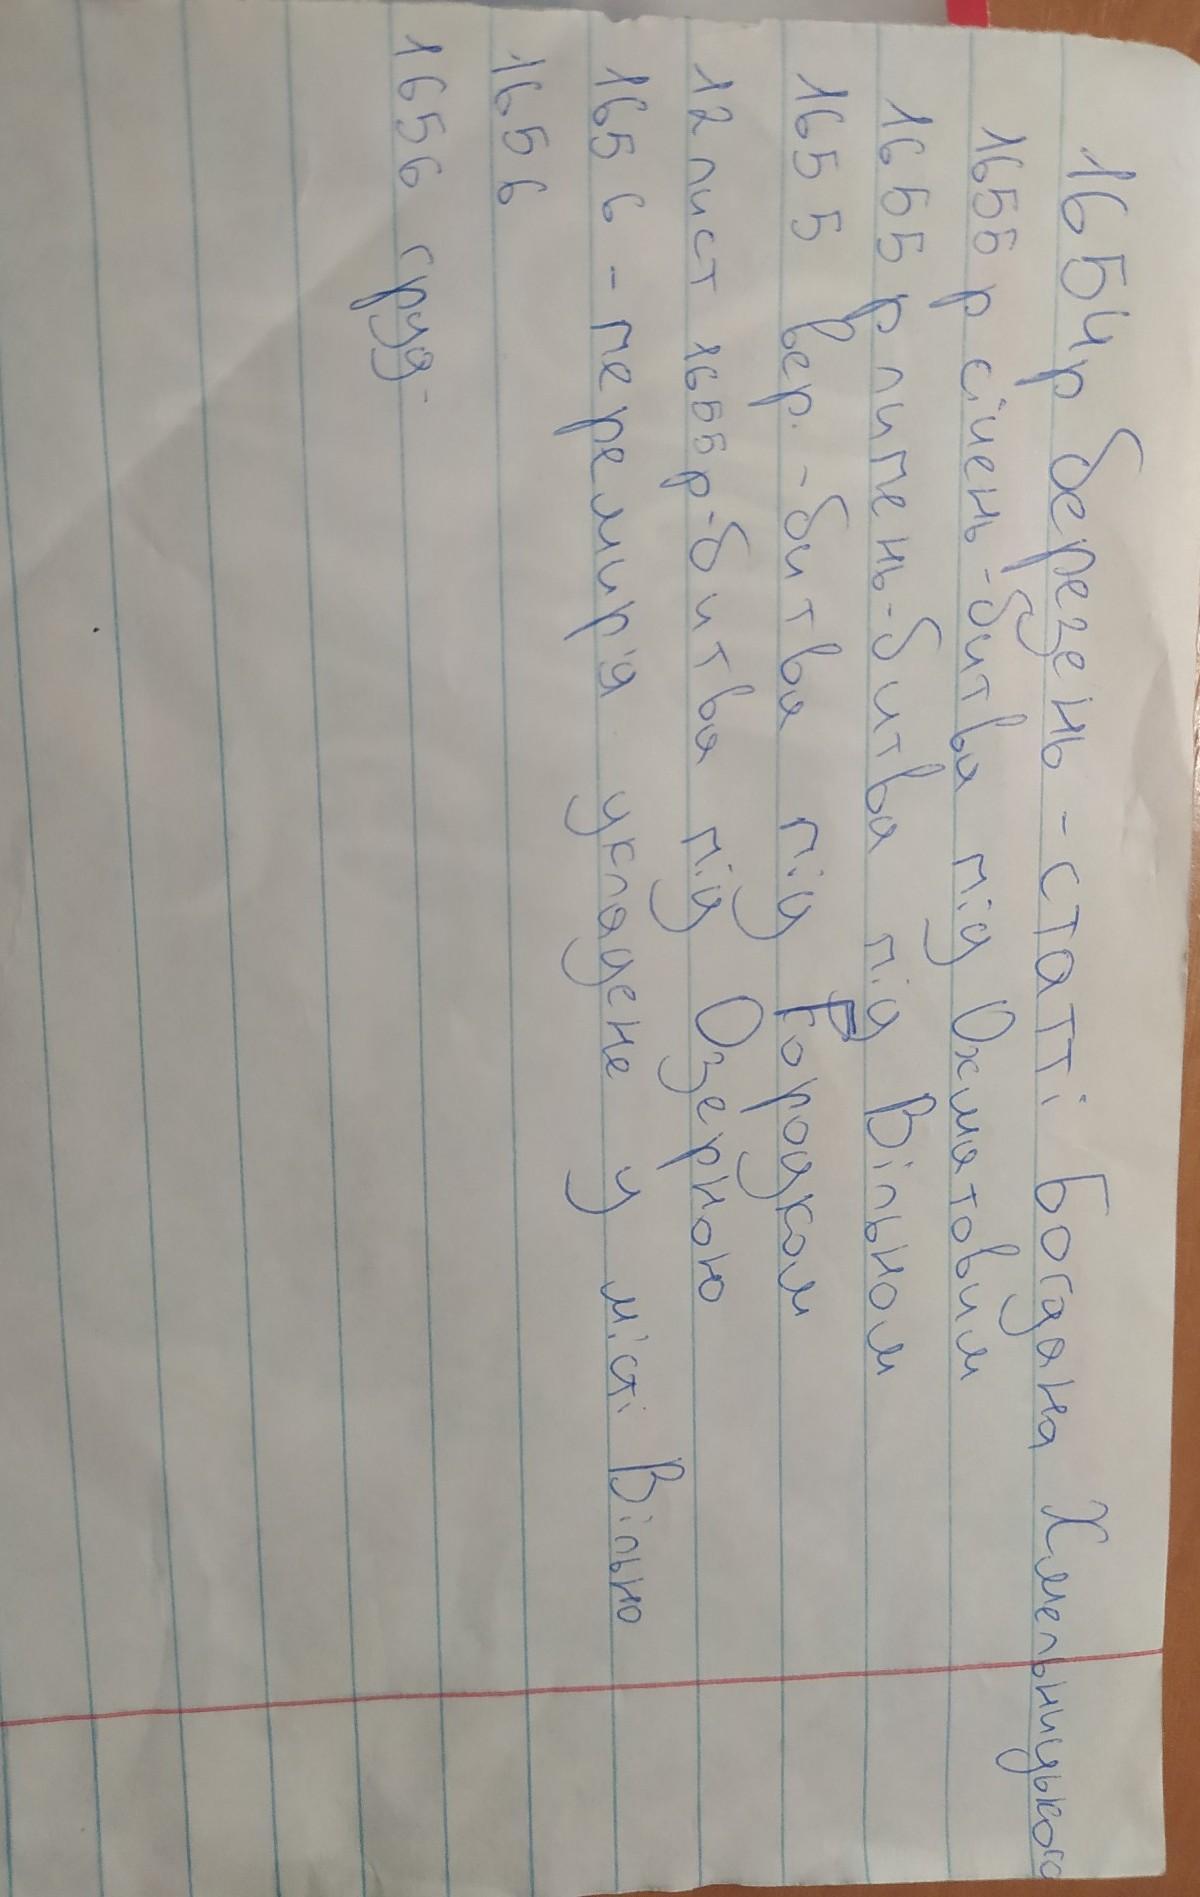 1654р березень - статті Богдана Хмельницького
1655 р січень - битва під Охматовим
1655 р липень - битва під Вільном
1655 вер. - битва під Городком
12 лист 1655р - битва під Озерною
1656 - перемир'я укладене у місті Вільно
1656
1656 груд.